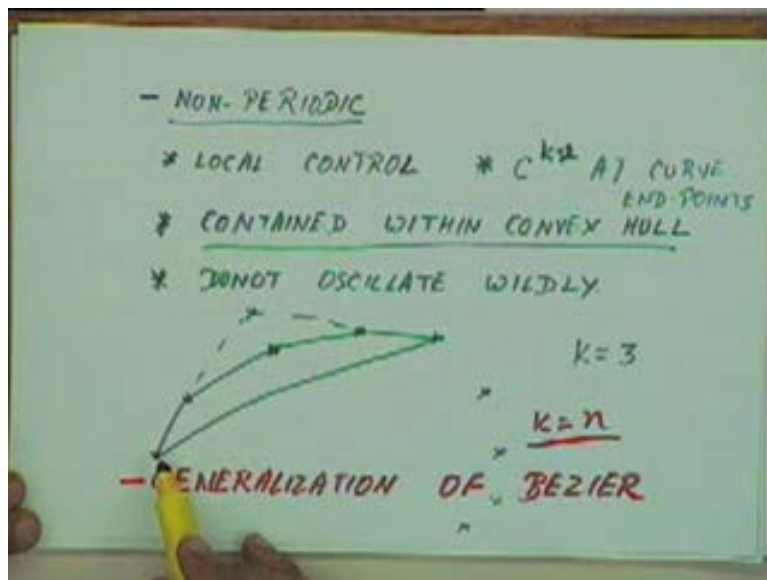 - NON-PERIODIC
* LOCAL CONTROL * C AT CURVE
END-POINTS
* CONTAINED WITHIN CONVEX HULL
* DONOT OSCILLATE WILDLY.
K=3
K=n
- GENERALIZATION OF BEZIER